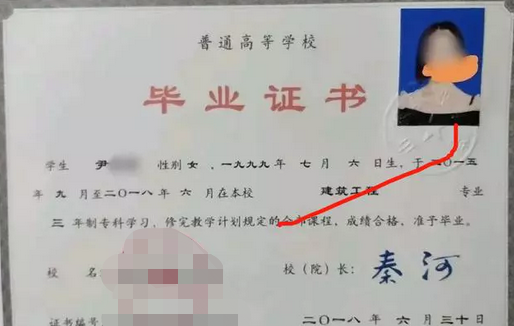 普通高等学校
毕业证书
学生 尹 性别 女、一九九九年 七 月 六 日生，于二〇一五
年 九 月至二〇一八年 六 月在本校 建筑工程 专业
三 年制专科学习，修完教学计划规定的全部课程，成绩合格，准予毕业。
校 名 校（院）长： 秦河
证书编号 二〇一八年 六 月 三十日